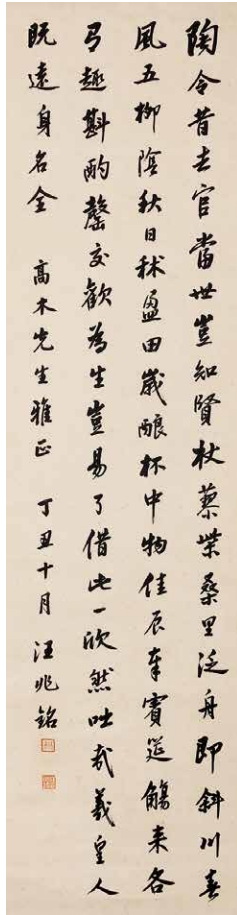 陶令昔去官當世豈知賢杖藜柴桑里泛舟即斜川春
風五柳陰秋日秫盈田歲釀杯中物佳辰奉賓筵觴來各
有趣斟酌罄交歡為生豈易了借此一欣然咄哉羲皇人
既遠身名全 高木先生雅正 丁丑十月 汪兆銘